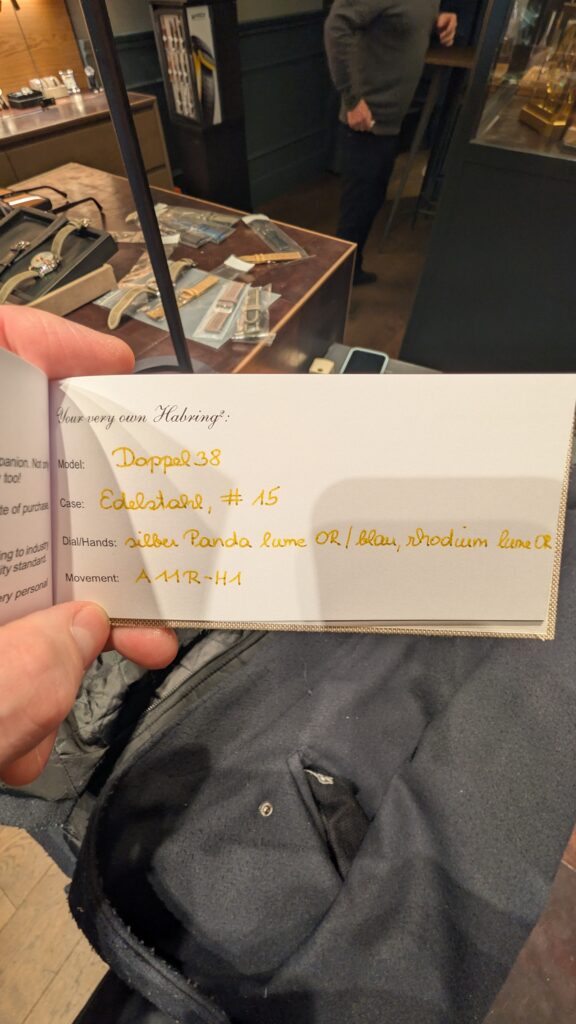 Your very own Habring²:
Model: Doppel 38
Case: Edelstahl, # 15
Dial/Hands: silber Panda lume OR / blau, rhodium lume OR
Movement: A11R-H1
panion. Not
too!
te of purchase
ing to industry
ity standard.
ery personal